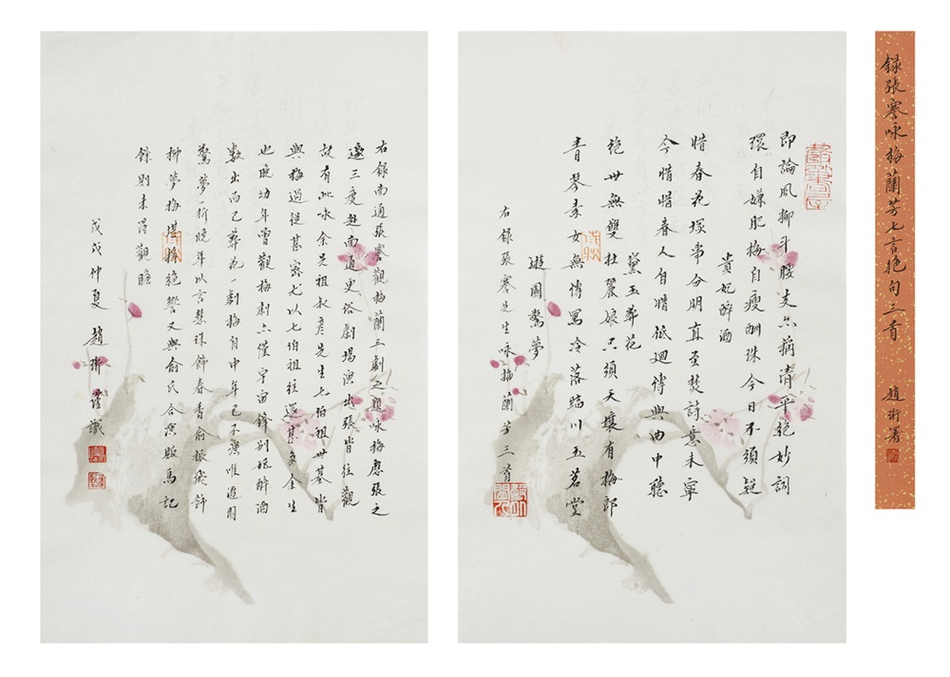 錄張謇咏梅蘭芳七言絶句三首 趙珩署
即論風柳斗腰支亦稱清平絶妙詞
環自嫌肥梅自瘦酬珠今日不須疑
貴妃醉酒
惜春花塚事分明直至焚詩意未寧
今惜惜春人自惜低迴傳與曲中聽
黛玉葬花
絶世無雙杜麗娘只須天壤有梅郎
青琴素女無傳寫冷落臨川玉茗堂
遊園驚夢
右錄張謇先生咏梅蘭芳三首
右錄南通張謇觀梅蘭三劇之觀咏梅應張之
邀三度赴南通更俗劇場演出張皆往觀
故有此咏余先祖叔彥先生七伯祖世基皆
與梅過從甚密尤以七伯祖往還甚多余生
也晚幼年曾觀梅劇亦僅宇宙鋒别姬醉酒
數出而已葬花一劇梅自中年已不演唯遊園
驚夢一折晚年以言慧珠飾春香俞振飛飾
柳夢梅堪稱絶響又與俞氏合演販馬記
餘則未得觀瞻
戊戌仲夏 趙珩謹識